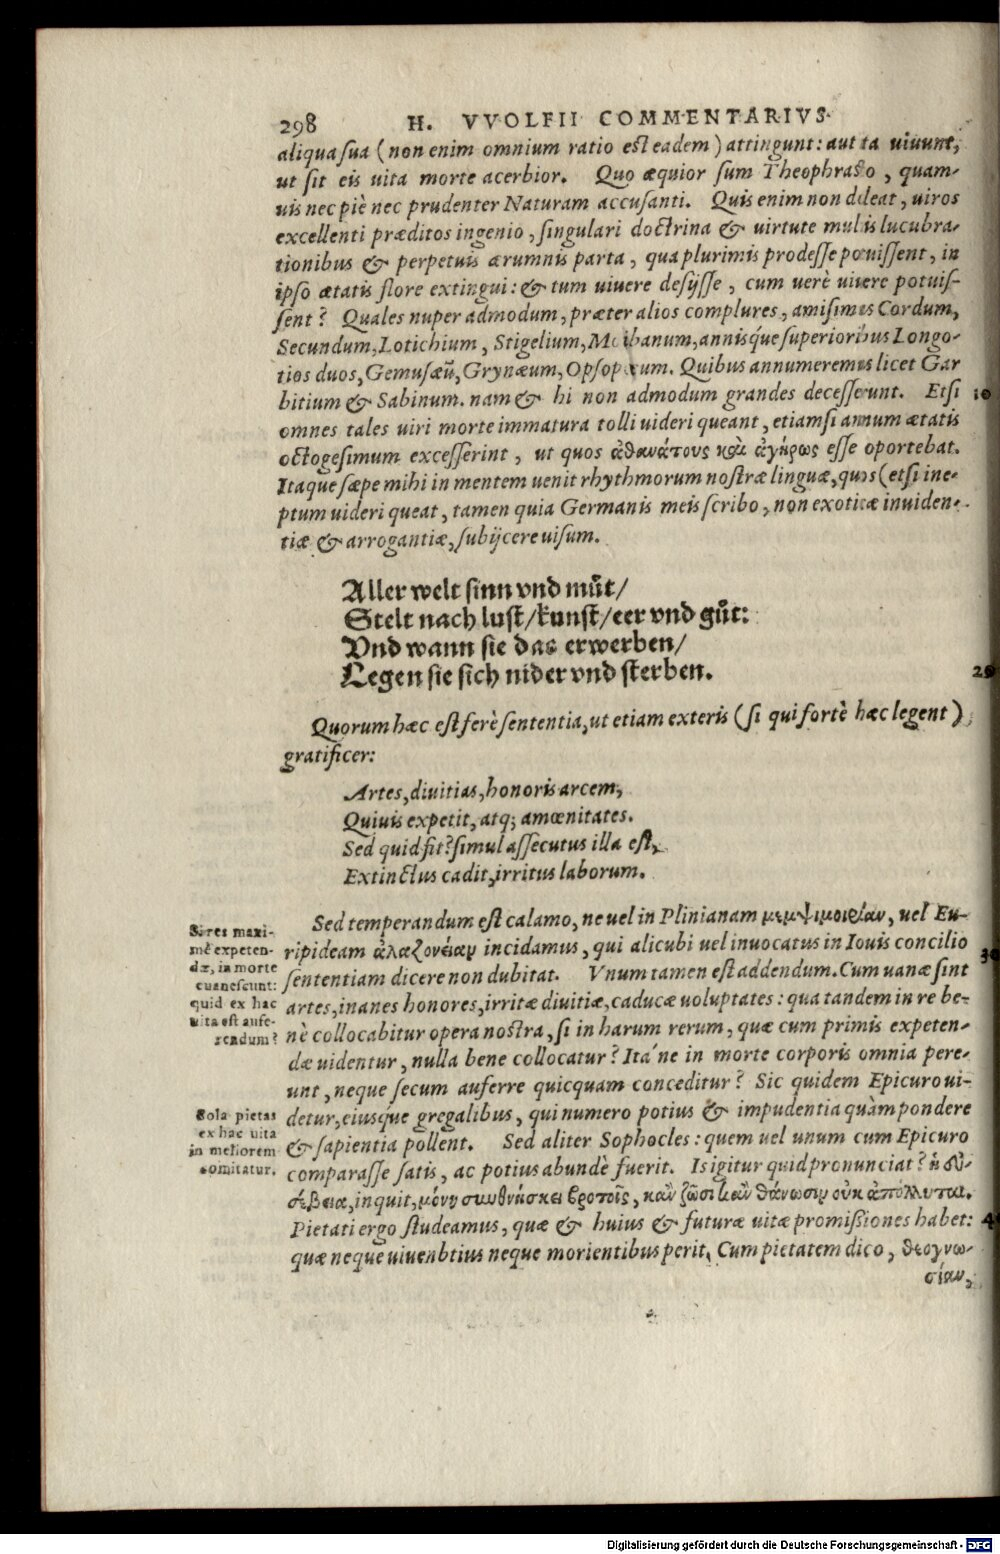 298 H. VVOLFII COMMENTARIVS
aliqua sua (non enim omnium ratio est eadem) attingunt: aut ita uiuunt,
ut sit eis uita morte acerbior. Quo æquior sum Theophrasto, quam-
uis nec piè nec prudenter Naturam accusanti. Quis enim non doleat, uiros
excellenti præditos ingenio, singulari doctrina & uirtute multis lucubra-
tionibus & perpetuis ærumnis parta, qua plurimis prodesse potuissent, in
ipso ætatis flore extingui: & tum uiuere desijsse, cum uerè uiuere potuis-
sent? Quales nuper admodum, præter alios complures, amisimus Cordum,
Secundum, Lotichium, Stigelium, Moibanum, annisq́ue superioribus Longo-
lios duos, Gemusæũ, Grynæum, Opsopœum. Quibus annumeremus licet Gar
bitium & Sabinum. nam & hi non admodum grandes decesserunt. Etsi 10
omnes tales uiri morte immatura tolli uideri queant, etiamsi annum ætatis
octogesimum excesserint, ut quos ἀθανάτους καὶ ἀγήρως esse oportebat.
Itaque sæpe mihi in mentem uenit rhythmorum nostræ linguæ, quos (etsi ine-
ptum uideri queat, tamen quia Germanis meis scribo, non exoticæ inuiden-
tiæ & arrogantiæ, subijcere uisum.
Aller welt sinn vnd muͦt/
Stelt nach lust/kunst/eer vnd guͦt:
Vnd wann sie das erwerben/
Legen sie sich nider vnd sterben. 20
Quorum hæc est ferè sententia, ut etiam exteris (si qui fortè hæc legent)
gratificer:
Artes, diuitias, honoris arcem,
Quiuis expetit, atq; amœnitates.
Sed quid fit? simul assecutus illa est,
Extinctus cadit, irritus laborum.
Sed temperandum est calamo, ne uel in Plinianam μεμψιμοιρίαν, uel Eu-
ripideam ἀλαζονείαν incidamus, qui alicubi uel inuocatus in Iouis concilio 30
sententiam dicere non dubitat. Vnum tamen est addendum. Cum uanæ sint
artes, inanes honores, irritæ diuitiæ, caducæ uoluptates: qua tandem in re be-
nè collocabitur opera nostra, si in harum rerum, quæ cum primis expeten-
dæ uidentur, nulla bene collocatur? Itá ne in morte corporis omnia pere-
unt, neque secum auferre quicquam conceditur? Sic quidem Epicuro ui-
detur, eiusq́ue gregalibus, qui numero potius & impudentia quàm pondere
& sapientia pollent. Sed aliter Sophocles: quem uel unum cum Epicuro
comparasse satis, ac potius abundè fuerit. Is igitur quid pronunciat? ἡ εὐ-
σέβεια, inquit, μόνη συνθνήσκει βροτοῖς, κἂν ζῶσι κἂν θάνωσιν οὐκ ἀπόλλυται.
Pietati ergo studeamus, quæ & huius & futuræ uitæ promissiones habet: 4
quæ neque uiuenbtius neque morientibus perit. Cum pietatem dico, θεογνω-
σίαν,
Si res maxi-
mè expeten-
dæ, in morte
euanescunt:
quid ex hac
uita est aufe-
rendum?
Sola pietas
ex hac uita
in meliorem
comitatur.
Digitalisierung gefördert durch die Deutsche Forschungsgemeinschaft - DFG